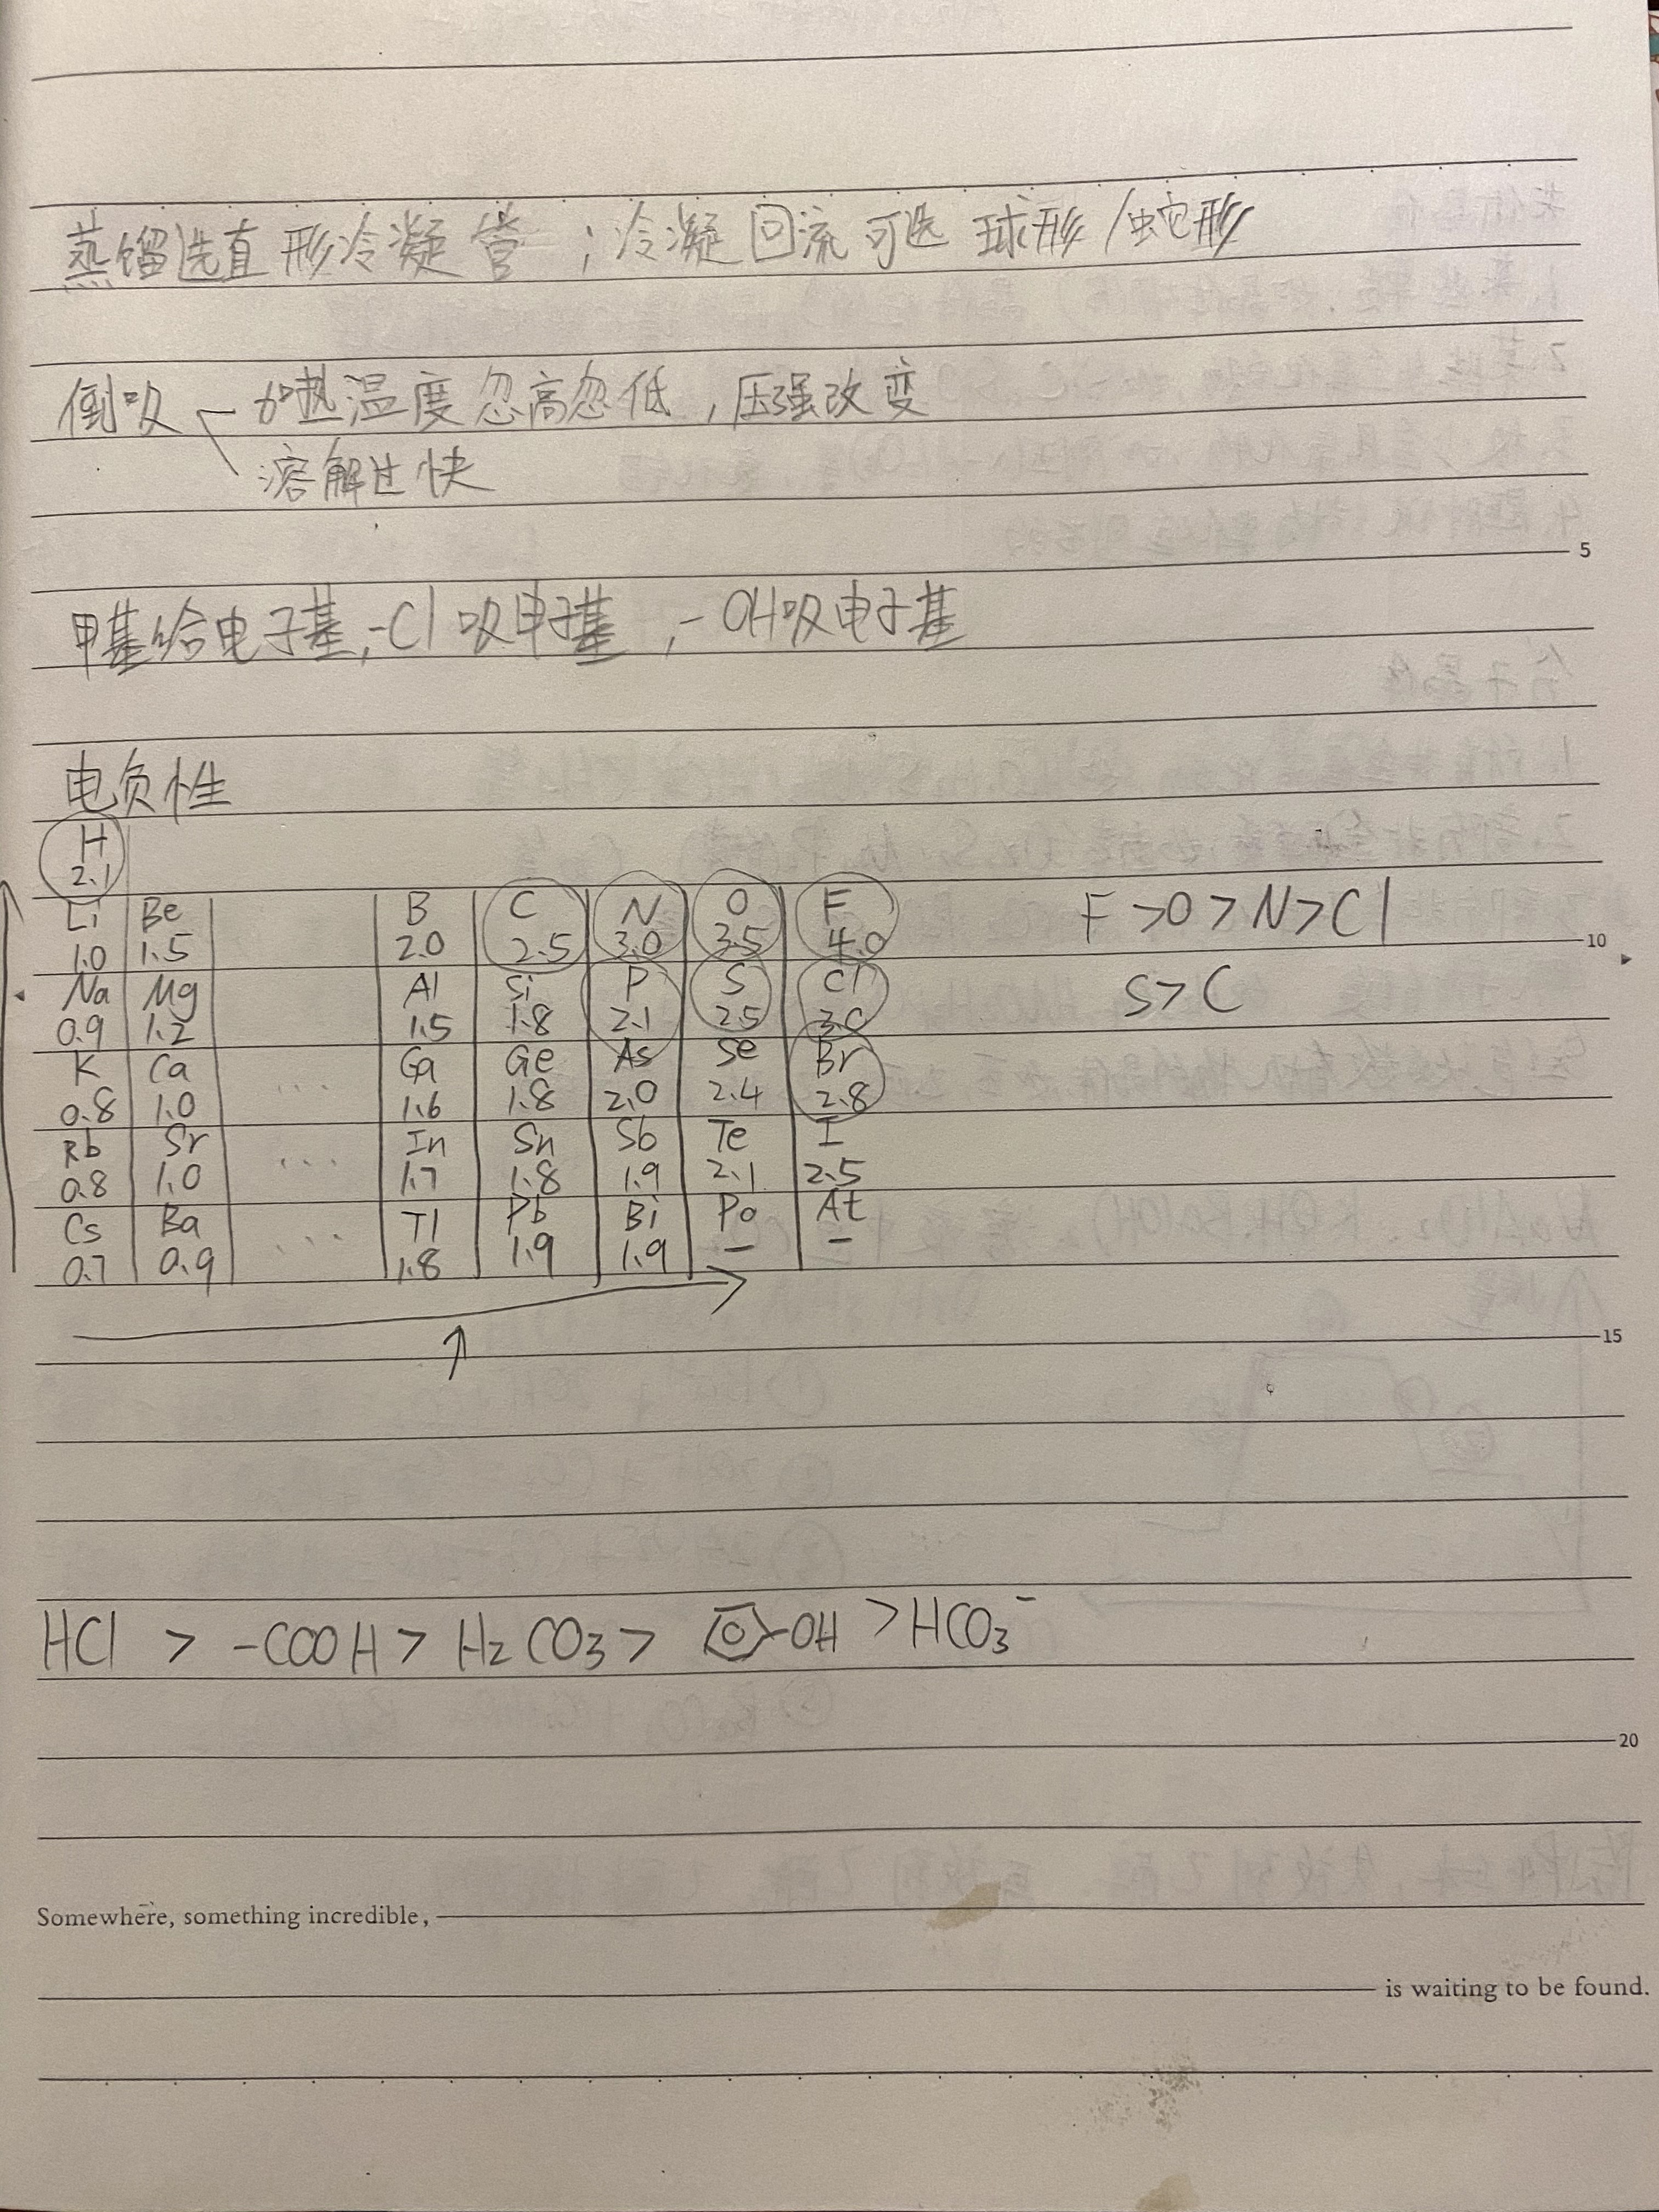 蒸馏选直形冷凝管；冷凝回流可选 球形/蛇形
倒吸 加热温度忽高忽低，压强改变
溶解过快
5
甲基给电子基，-Cl吸电子基，-OH吸电子基
电负性
H
2.1
Li Be B C N O F F>O>N>Cl
1.0 1.5 2.0 2.5 3.0 3.5 4.0 10
Na Mg Al Si P S Cl S>C
0.9 1.2 1.5 1.8 2.1 2.5 3.0
K Ca ... Ga Ge As Se Br
0.8 1.0 1.6 1.8 2.0 2.4 2.8
Rb Sr ... In Sn Sb Te I
0.8 1.0 1.7 1.8 1.9 2.1 2.5
Cs Ba ... Tl Pb Bi Po At
0.7 0.9 1.8 1.9 1.9 — —
15
HCl > -COOH > H₂CO₃ > -OH > HCO₃⁻
20
Somewhere, something incredible,
is waiting to be found.